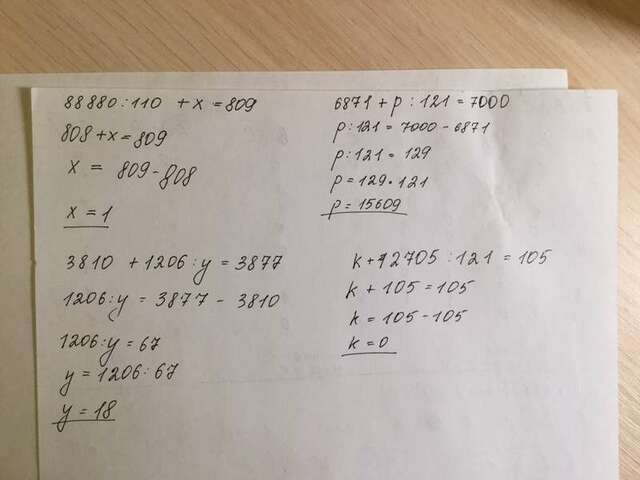 88880:110 + x = 809
808 + x = 809
x = 809 - 808
x = 1
6871 + p : 121 = 7000
p:121 = 7000 - 6871
p:121 = 129
p = 129 · 121
p = 15609
3810 + 1206 : y = 3877
1206:y = 3877 - 3810
1206:y = 67
y = 1206 : 67
y = 18
k + 12705 : 121 = 105
k + 105 = 105
k = 105 - 105
k = 0